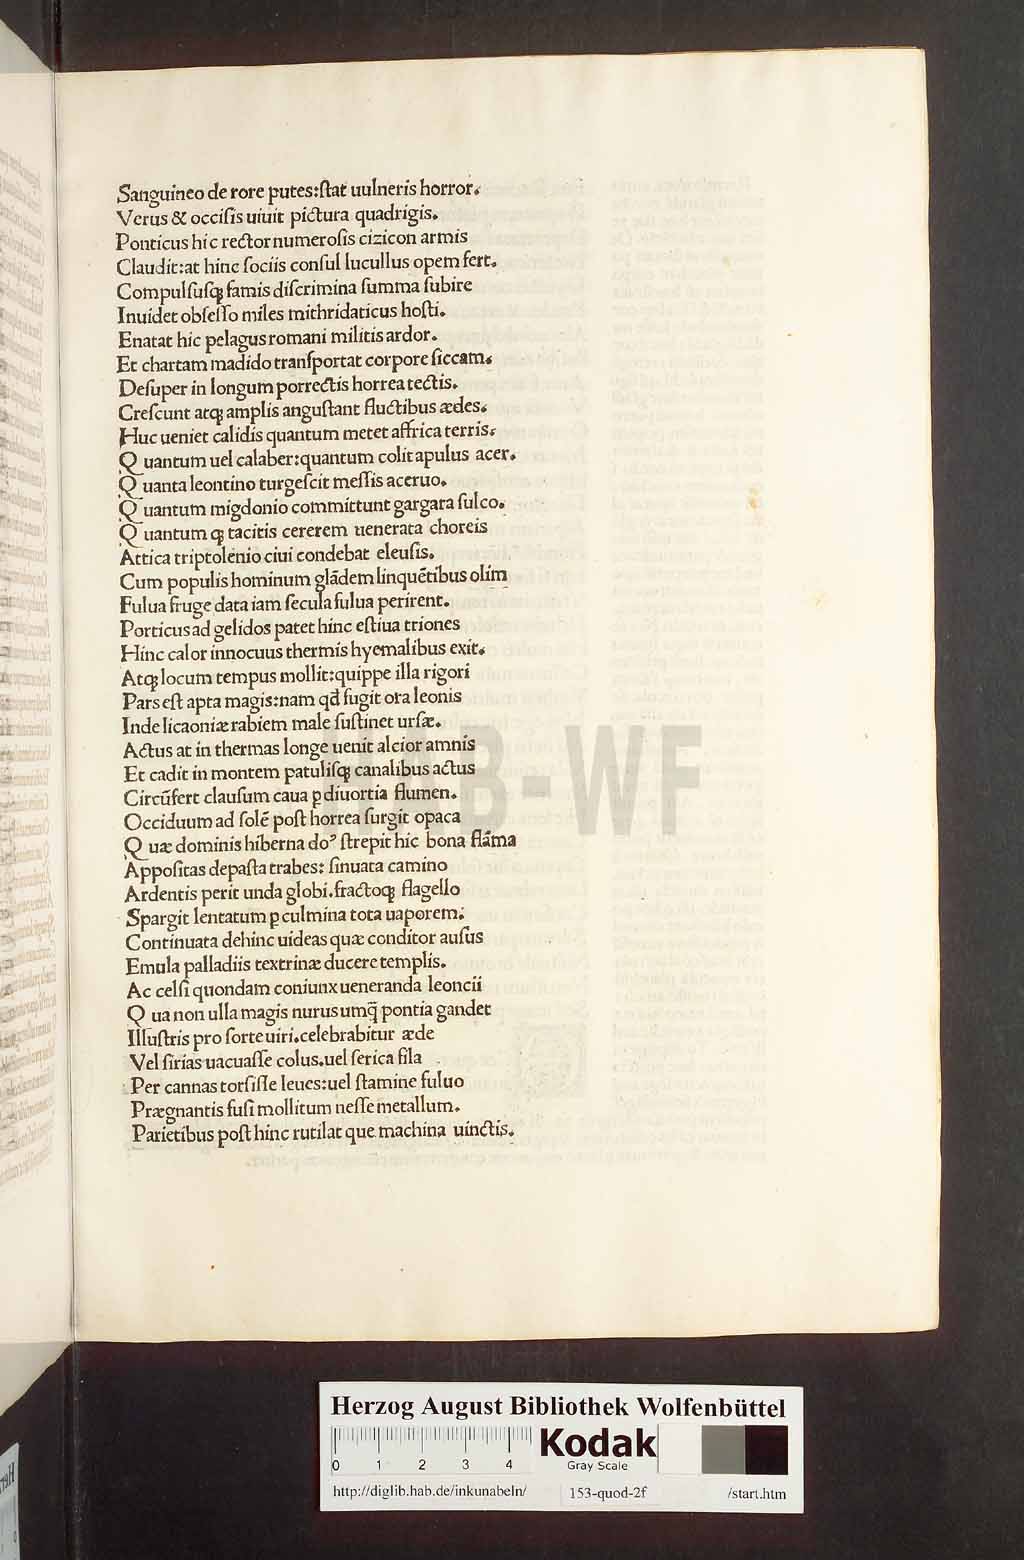 Sanguineo de rore putes:stat uulneris horror.
Verus & occisis uiuit pictura quadrigis.
Ponticus hic rector numerosis cizicon armis
Claudit:at hinc sociis consul lucullus opem fert.
Compulsusqꝫ famis discrimina summa subire
Inuidet obsesso miles mithridaticus hosti.
Enatat hic pelagus romani militis ardor.
Et chartam madido transportat corpore siccam.
Desuper in longum porrectis horrea tectis.
Crescunt atqꝫ amplis angustant fluctibus ædes.
Huc ueniet calidis quantum metet affrica terris.
Q uantum uel calaber:quantum colit apulus acer.
Q uanta leontino turgescit messis aceruo.
Q uantum migdonio committunt gargara sulco.
Q uantum qꝫ tacitis cererem uenerata choreis
Attica triptolenio ciui condebat eleusis.
Cum populis hominum glādem linquētibus olim
Fulua fruge data iam secula fulua perirent.
Porticus ad gelidos patet hinc estiua triones
Hinc calor innocuus thermis hyemalibus exit.
Atqꝫ locum tempus mollit:quippe illa rigori
Pars est apta magis:nam qd̄ fugit ora leonis
Inde licaoniæ rabiem male sustinet ursæ.
Actus at in thermas longe uenit alcior amnis
Et cadit in montem patulisqꝫ canalibus actus
Circūfert clausum caua ꝑ diuortia flumen.
Occiduum ad solē post horrea surgit opaca
Q uæ dominis hiberna doꝰ strepit hic bona flāma
Appositas depasta trabes: sinuata camino
Ardentis perit unda globi.fractoqꝫ flagello
Spargit lentatum ꝑ culmina tota uaporem.
Continuata dehinc uideas quæ conditor ausus
Emula palladiis textrinæ ducere templis.
Ac celsi quondam coniunx ueneranda leoncii
Q ua non ulla magis nurus umq̄ pontia gandet
Illustris pro sorte uiri.celebrabitur æde
Vel sirias uacuasse colus.uel serica fila
Per cannas torsisse leues:uel stamine fuluo
Prægnantis fusi mollitum nesse metallum.
Parietibus post hinc rutilat que machina uinctis.
HAB-WF
Herzog August Bibliothek Wolfenbüttel
0 1 2 3 4
Kodak
Gray Scale
http://diglib.hab.de/inkunabeln/ 153-quod-2f /start.htm